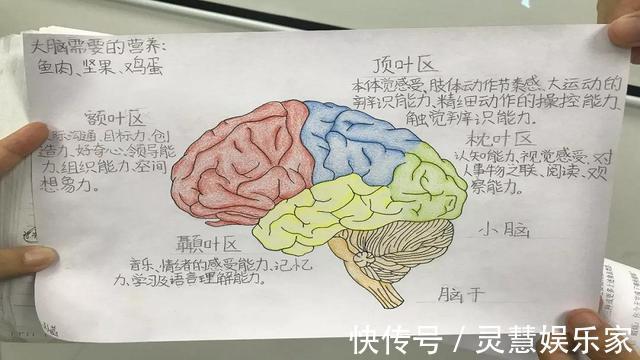 大脑需要的营养:
鱼肉、坚果、鸡蛋
额叶区
际沟通、目标力、创
造力、好奇心、领导能
力、组织能力、空间
想象力。
顶叶区
本体觉感受、肢体动作节奏感、大运动的
辨识能力、精细动作的操控能力、
触觉辨识能力。
枕叶区
认知能力、视觉感受、对
人事物之联、阅读、观
察能力。
颞叶区
音乐、情绪的感受能力、记忆
力、学习及语言理解能力。
小脑
脑干
快传号 / 灵慧娱乐家